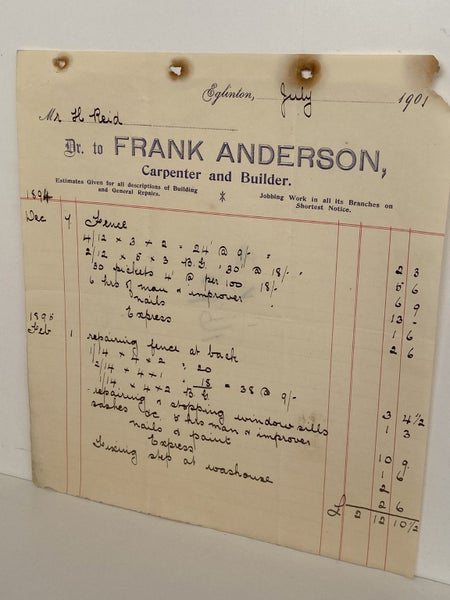 Eglinton, July 1901
Mr H Reid
Dr. to FRANK ANDERSON,
Carpenter and Builder.
Estimates Given for all descriptions of Building and General Repairs.
Jobbing Work in all its Branches on Shortest Notice.
1894
Dec 7 Fence
4/12 × 3 × 2 = 24' @ 9/- " 2 3
2/12 × 5 × 3 B.G. 30' @ 18/- 5 6
50 pickets 4' @ per 100 18/- 6 9
6 hrs of man & improver 13 -
nails 1 6
Express 2 6
1895
Feb 1 repairing fence at back
1/14 × 4 × 2 = 20
2/14 × 4 × 1 18 = 38 @ 9/-
1/14 × 4 × 2 B.G. 3 4½
repairing & stopping window sills 1 3
sashes &c. hrs man & improver 10 9
nails & paint 1 6
Express 2
Fixing step at washouse 2 6
£ 2 12 10½